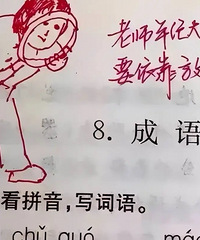 老师年纪大
要依靠放
8. 成 语
看拼音,写词语。
chǔ guó